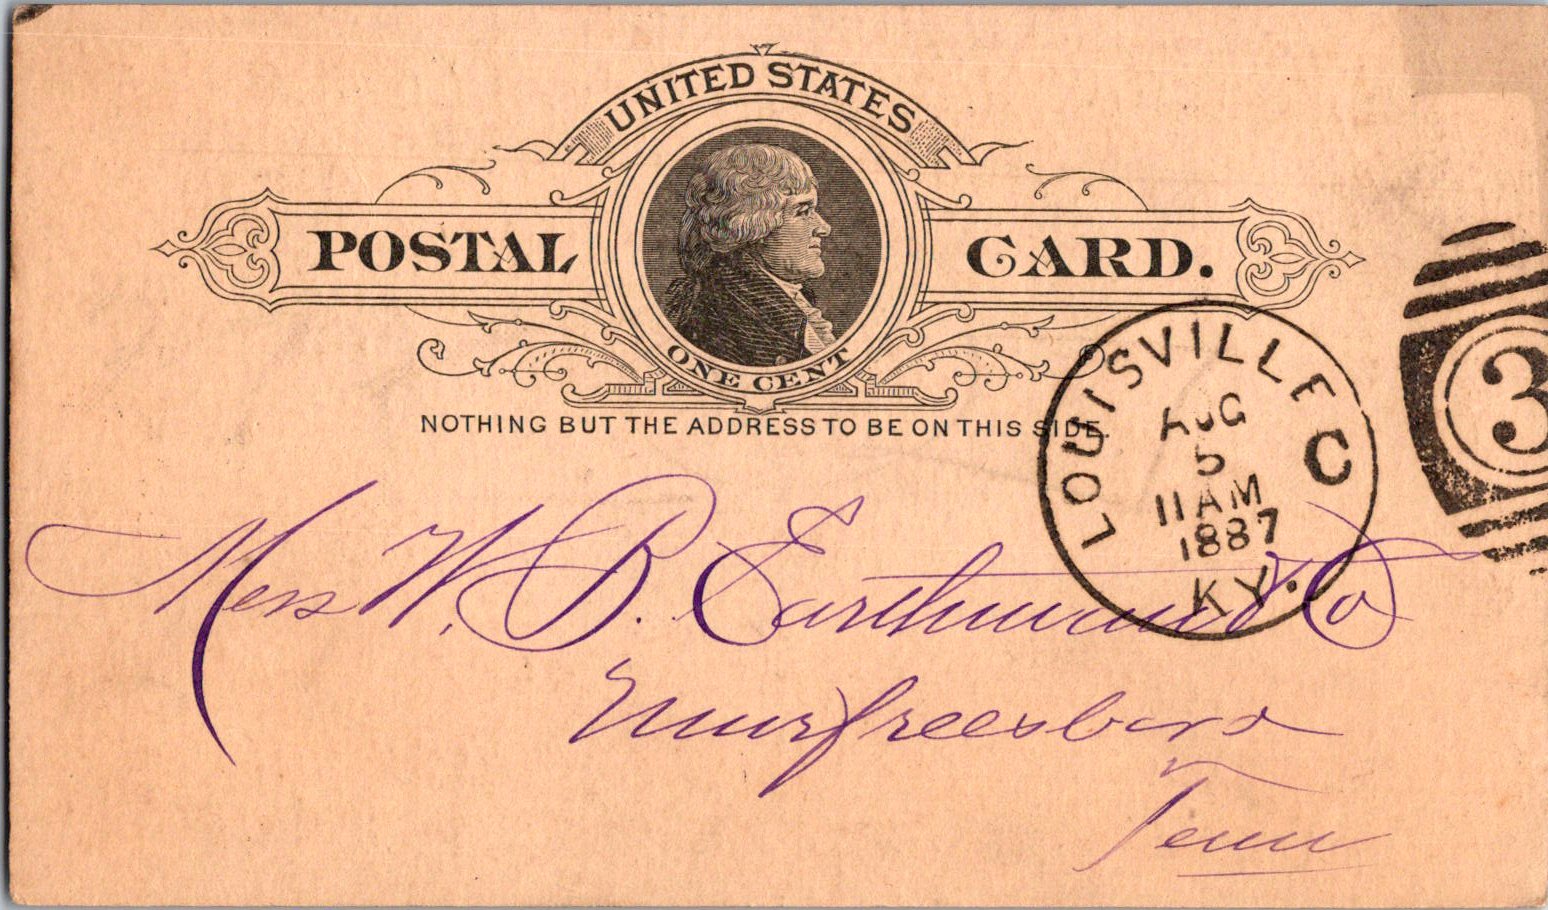 UNITED STATES
POSTAL CARD.
ONE CENT
NOTHING BUT THE ADDRESS TO BE ON THIS SIDE.
LOUISVILLE KY.
C
AUG
5
11 AM
1887
3
Mess W. B. Earthman & Co
Murfreesboro
Tenn